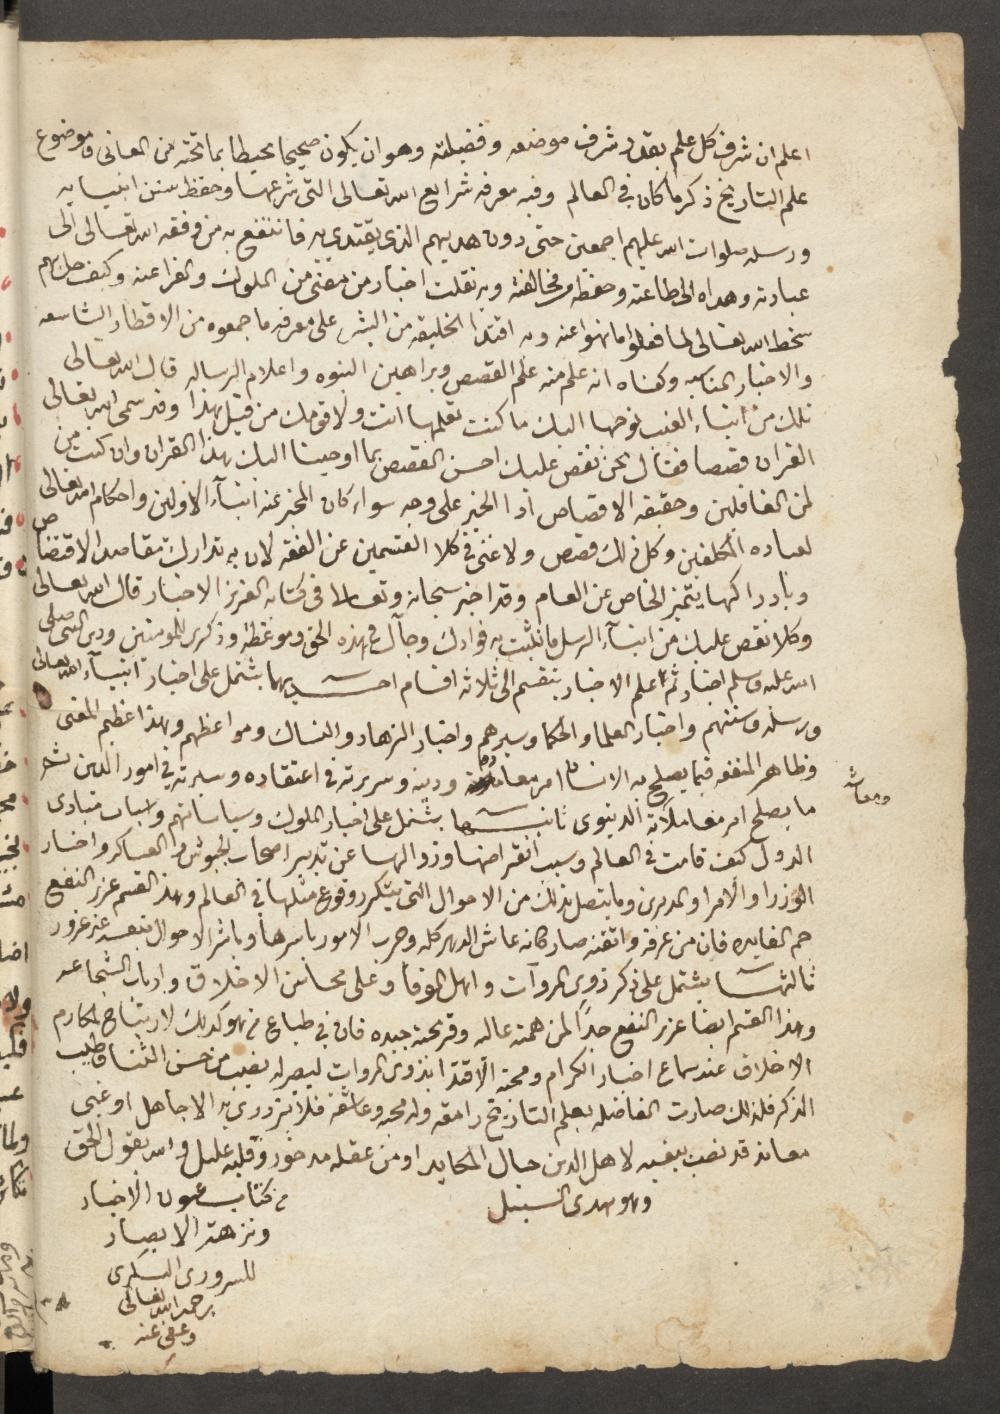 اعلم ان شرف كل علم بقدر شرف موضعه وفضيلته وهو ان يكون صحيحا محيطا بما تحته من المعانى وموضوع
علم التاريخ ذكر ما كان فى العالم وفيه معرفه شرايع الله تعالى التى شرعها وحفظ سنن انبيايه
ورسله صلوات الله عليهم اجمعين حتى دون هديهم الذى يقتدى به فانتفع به من وفقه الله تعالى الى
عبادته وهداه الى طاعته وحفظه من مخالفته وبه نقلت اخبار من مضى من الملوك والفراعنه وكيف حل بهم
سخط الله تعالى لما فعلوا ما نهوا عنه وبه اقتدا الخليقه من البشر على معرفه ما جمعوه من الاقطار الشاسعه
والاخبار وكفاه انه علم منه علم القصص وبراهين النبوه واعلام الرساله قال الله تعالى
تلك من انباء الغيب نوحيها اليك ما كنت تعلمها انت ولا قومك من قبل هذا وقد سمى الله تعالى
القران قصصا فقال نحن نقص عليك احسن القصص بما اوحينا اليك هذا القران وان كنت من
لمن الغافلين وحقيقه الاقصاص اذا الخبر على وجه سواء كان المخبر عنه انبآء الاولين واحكام الله تعالى
لعباده المكلفين وكل ذلك قصص ولا غنى فى كلا القسمين عن الفقه لان به تدارك مقاصد الاقتصاص
وبادراكها يتميز الخاص عن العام وقد اخبر سبحانه وتعالى فى كتابه العزيز الاخبار قال الله تعالى
وكلا نقص عليك من انبآء الرسل ما نثبت به فوادك وجآك فى هذه الحق وموعظة وذكرى للمومنين النبى صلى
الله عليه وسلم اخبار ثم اعلم الاخبار ينقسم الى ثلاثه اقسام احديها يشتمل على اخبار انبيآء الله تعالى
ورسله وسننهم واخبار العلما والحكما وسيرهم واخبار الزهاد والنساك ومواعظهم وهذا اعظم المعنى
وظاهر المنفعه فيما يصلح به الانسان امر معاده ودينه وسريرته فى اعتقاده وسيرته فى امور الدين
ومعاشه
ما يصلح امر معاملاته الدنيوى ثانيها يشتمل على اخبار الملوك وسياساتهم واسباب مبادى
الدول كيف قامت فى العالم وسبب انقراضها وزوالها عن تدبير اصحاب الجيوش والعساكر واخبار
الوزرا والامرا والمدبرين وما يتصل بذلك من الاحوال التى يتكرر وقوع مثلها فى العالم وهذ القسم عزيز النفع
جم الفايده فان من عرفه واتقنه صار كانه عاش الدهر كله وجرب الامور باسرها وباشر الاحوال بنفسه
ثالثها يشتمل على ذكر ذوى المروآت واهل الوفا وعلى محاسن الاخلاق وارباب الشجاعه
وهذا القسم ايضا عزيز النفع جداً لمن همته عاليه وقريحته جيده فان فى طباع من هو كذلك لارتياح لمكارم
الاخلاق عند سماع اخبار الكرام ومحبه الاقتدا بذوى المروات ليصير له نصيب من حسن الثنا وطيب
الذكر فلذلك صارت الفاضله بعلم التاريخ رامقه وله محبه وعاشقه فلا يزدرى به الا جاهل او غبى
معاند قد نصب بنفسه لاهل الدين حبال المكايد او من عقله مدخور وقلبه عليل والله يقول الحق
وهو يهدى السبيل
من كتاب عيون الاخبار
ونزهة الابصار
للسرورى البكرى
رحمه الله تعالى
وعفى عنه